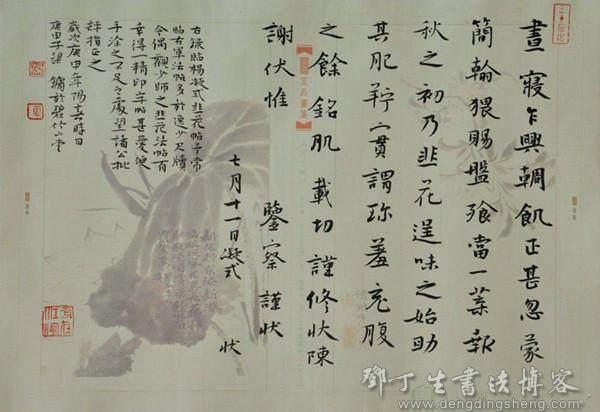 晝寢乍興輖飢正甚忽蒙
簡翰猥賜盤飧當一葉報
秋之初乃韭花逞味之始助
其肥羜實謂珍羞充腹
之餘銘肌載切謹修狀陳
謝伏惟 鑒察謹狀
七月十一日凝式 狀
右錄楊凝式韭花帖予常
臨右軍法帖多於逸少尺牘
今偶觀少師之韭花法帖百
幸得一精印字帖甚愛便
手塗之不足之處望諸公批
評指正之
歲次庚申年陽春時日
鄧丁生書法博客
www.dengdingsheng.com